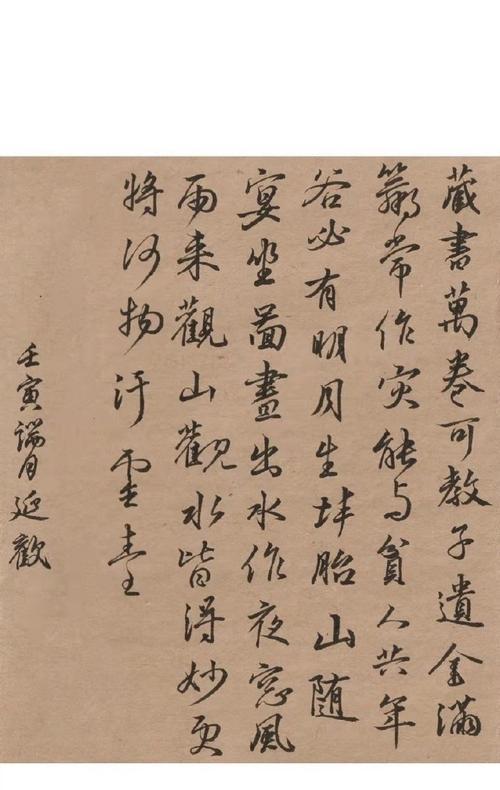 藏書萬卷可教子遺金滿
籯常作灾能与貧人共年
谷必有明月生蚌胎山随
宴坐圖畫出水作夜窓風
雨来觀山觀水皆得妙更
將何物汙靈臺
壬寅端月延歡